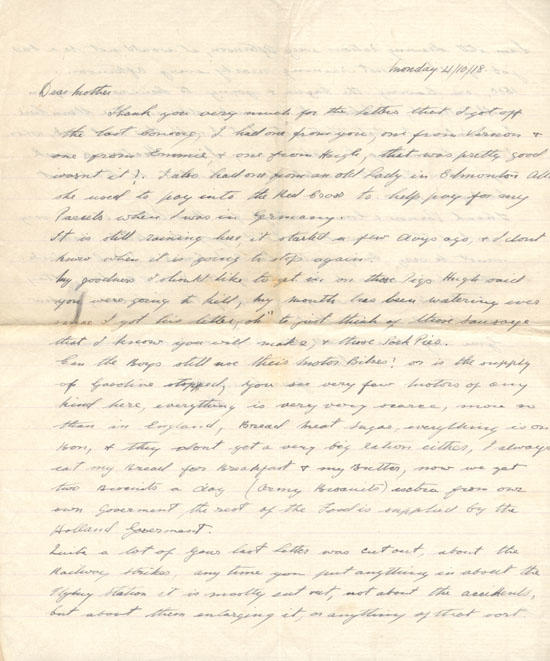 Monday 4/10/18.
Dear Mother
Thank you very much for the letter that I got off
the last Convoy, I had one from you, one from Vernon &
one from Emmie & one from Hugh, that was pretty good
wasnt it?. I also had one from an old lady in Edmonton Alb
she used to pay into the Red Cross to help pay for my
Parcels when I was in Germany.
It is still raining here it started a few days ago, & I dont
know when it is going to stop again.
My goodness I should like to get in on those Pigs Hugh said
you were going to kill, my mouth has been watering ever
since I got his letter, oh" to just think of those Sausage
that I know you will make, & those Pork Pies.
Can the Boys still use their Motor Bikes? or is the supply
of Gasoline stopped, you see very few Motors of any
kind here, everything is very very scarce, more so
than in England, Bread Meat Sugar, everything is on
Bon, & they dont get a very big ration either, I always
eat my Bread for Breakfast & my Butter, now we get
two Biscuits a day (Army Biscuits) extra from our
own Goverment the rest of the Food is supplied by the
Holland Goverment.
Quite a lot of your last letter was cut out, about the
Railway Strikes, any time you put anything in about the
Flying Station it is mostly cut out, not about the accidents,
but about them enlarging it, or anything of that sort.